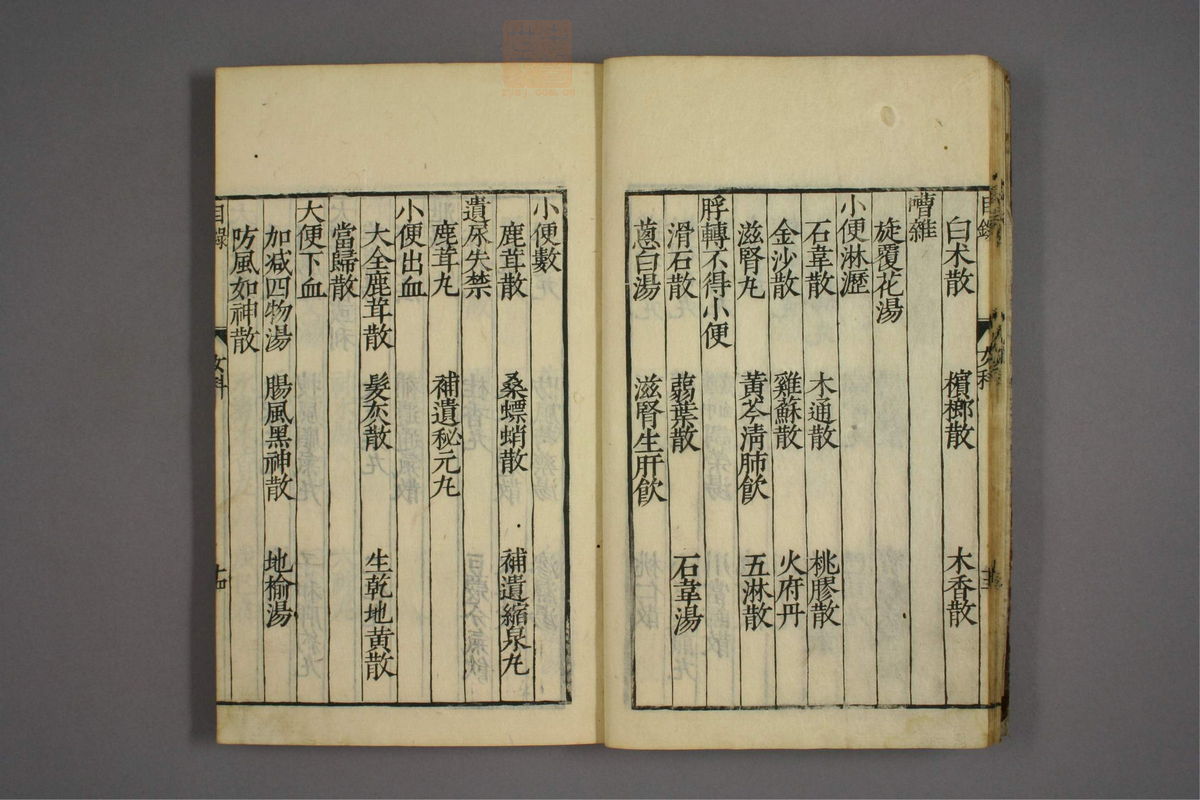 目錄 女科
白术散 檳榔散 木香散
嘈雜
旋覆花湯
小便淋瀝
石韋散 木通散 桃膠散
金沙散 雞蘇散 火府丹
滋腎丸 黃芩淸肺飮 五淋散
脬轉不得小便
滑石散 蒻葉散 石韋湯
蔥白湯 滋腎生肝飮
小便數
鹿茸散 桑螵蛸散 補遺縮泉丸
遺尿失禁
鹿茸丸 補遺秘元丸
小便出血
大全鹿茸散 髮灰散 生乾地黃散
當歸散
大便下血
加减四物湯 腸風黑神散 地榆湯
防風如神散
目錄 女科 十四